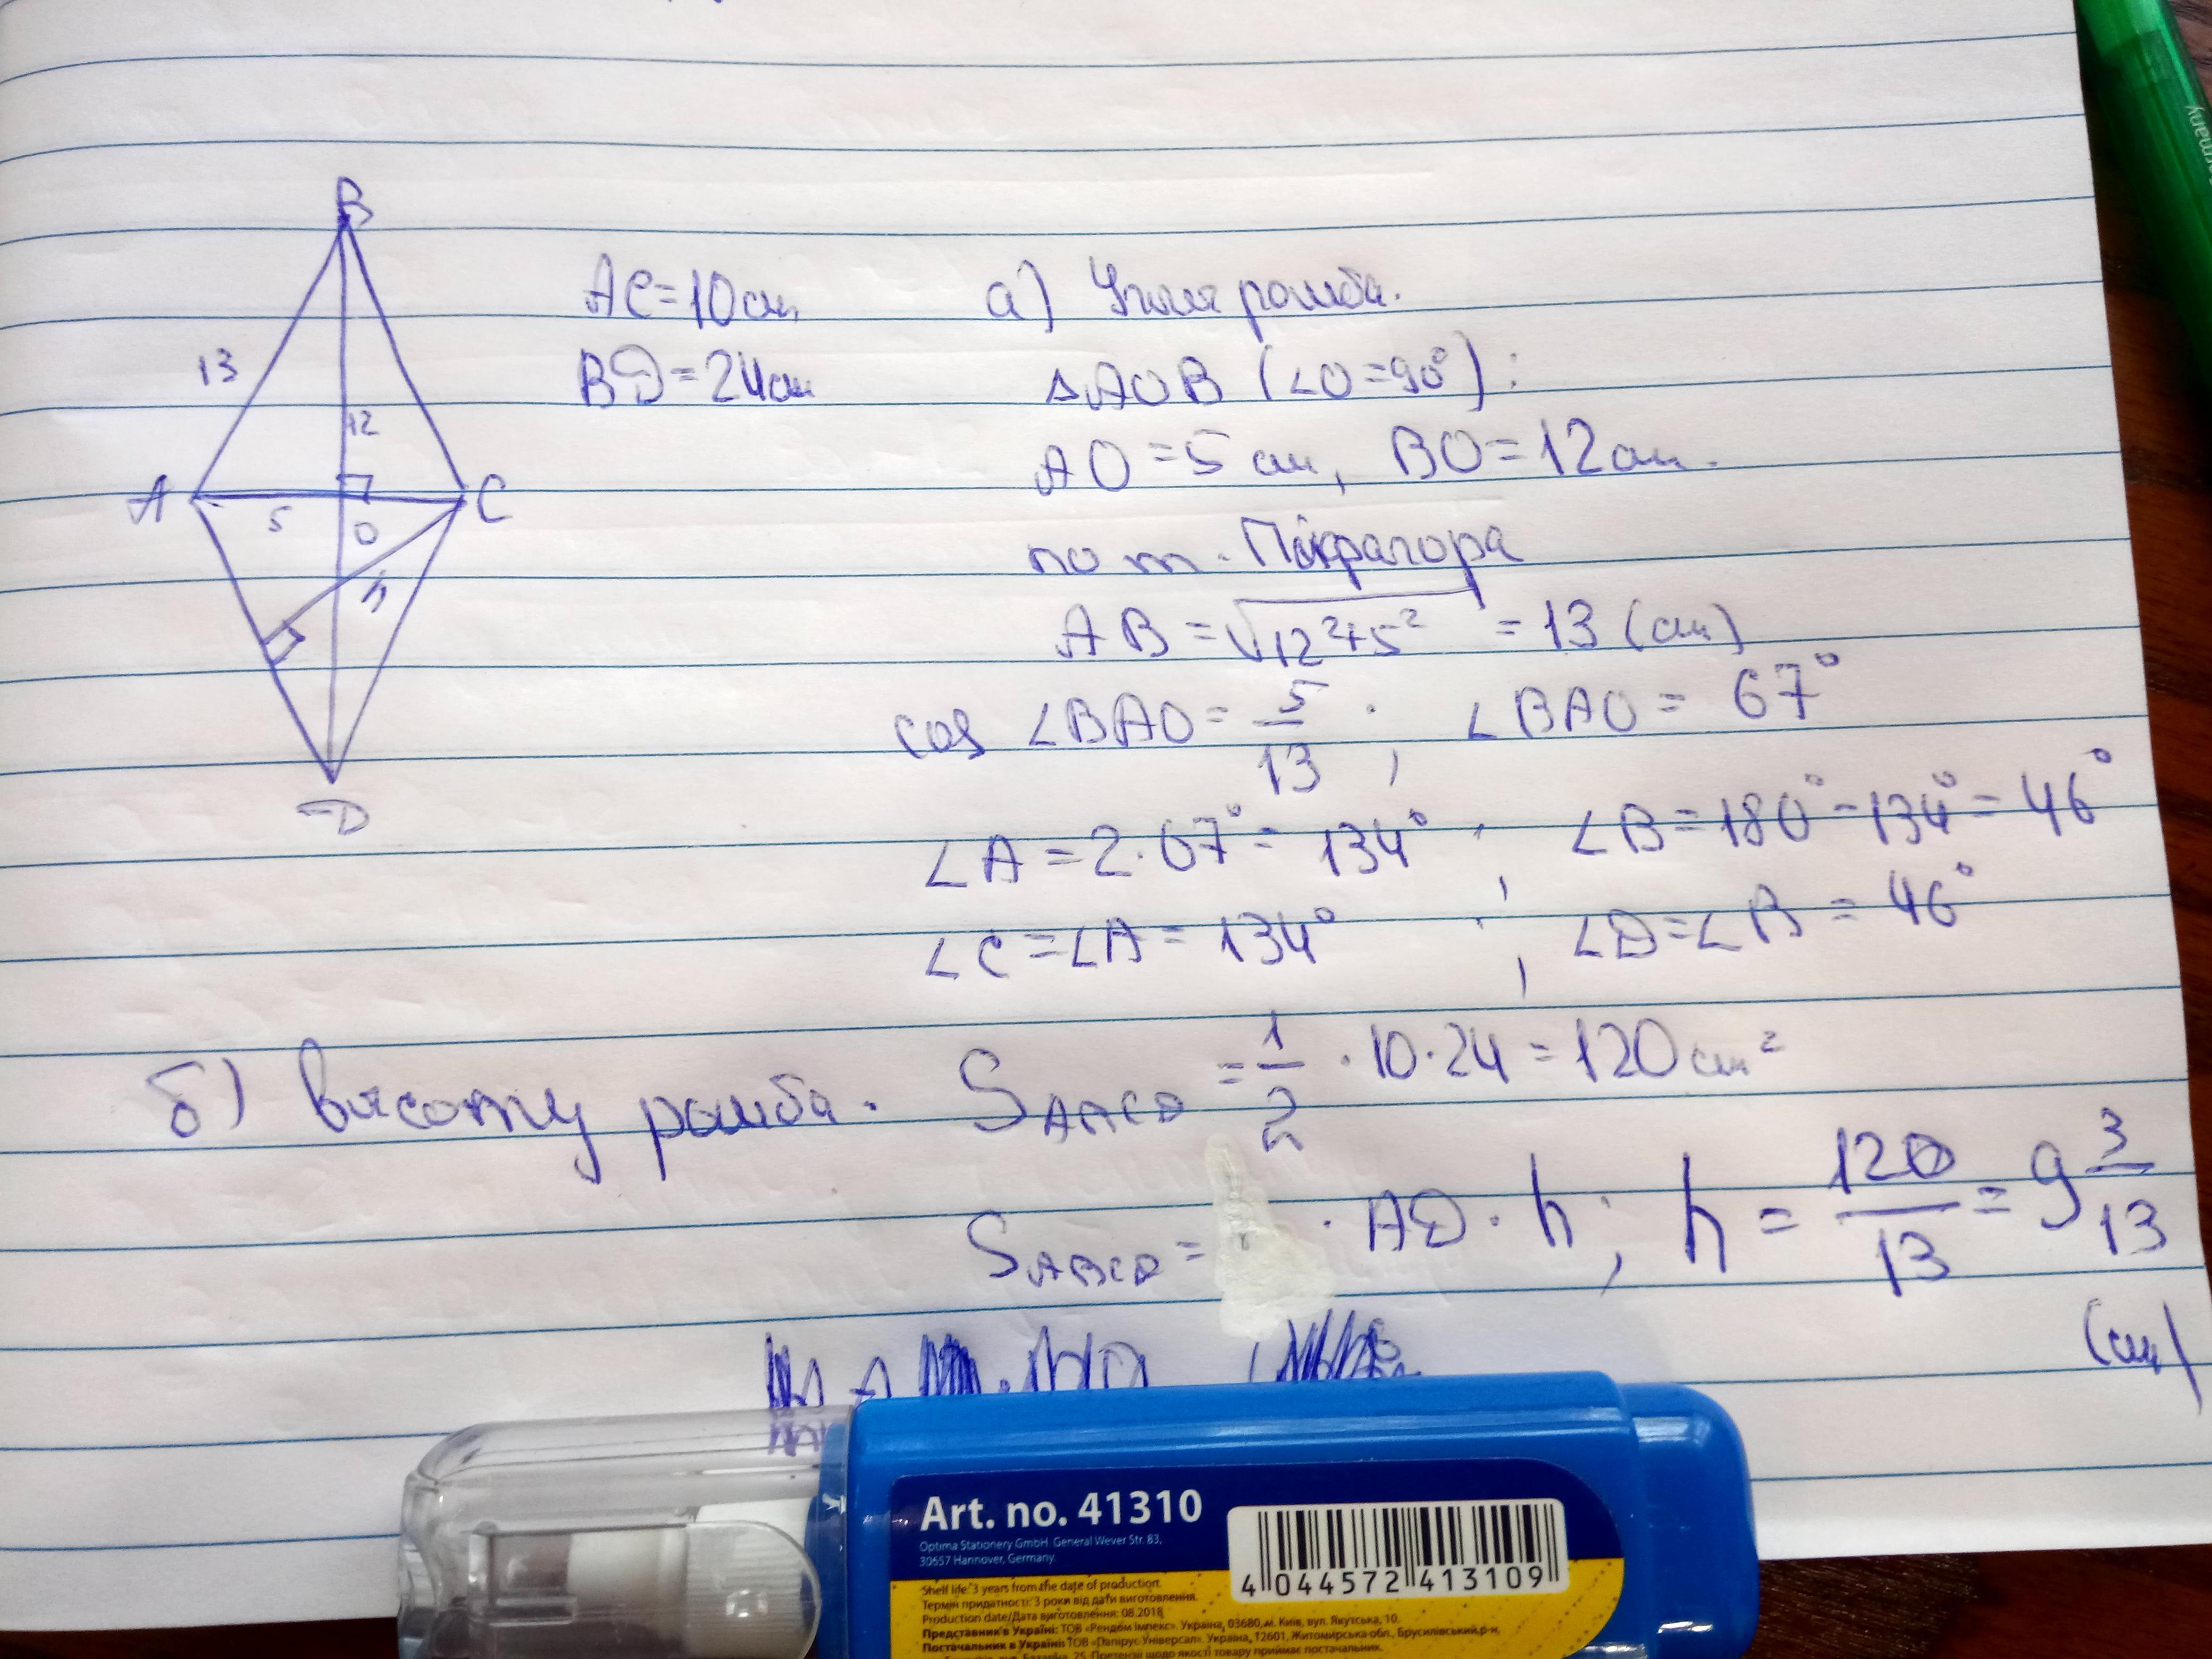 B
AC=10см
а) Углы ромба.
13
BD=24см
△AOB (∠O=90°):
12
AO=5 см, BO=12см.
A
5
O
C
по т. Піфагора
h
AB=√12²+5² = 13 (см)
cos ∠BAO= 5/13 ; ∠BAO = 67°
D
∠A=2·67°= 134° ; ∠B=180°-134°= 46°
∠C=∠A= 134° ; ∠D=∠B = 46°
б) Высоту ромба. SABCD = 1/2 · 10·24 = 120 см²
SABCD = · AD · h ; h = 120/13 = 9 3/13
(см)
Art. no. 41310
Optima Stationery GmbH General Wever Str. 83,
30657 Hannover, Germany.
4 044572 413109
Shelf life: 3 years from the date of production.
Термін придатності: 3 роки від дати виготовлення.
Production date/Дата виготовлення: 08.2018
Представник в Україні: ТОВ «Рендом Імпекс». Україна, 03680, м. Київ, вул. Якутська, 10.
Постачальник в Україні: ТОВ «Папірус-Універсал». Україна, 12601, Житомирська обл., Брусилівський р-н,
25. Претензії щодо якості товару приймає постачальник.